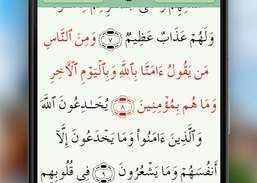 وَلَهُمْ عَذَابٌ عَظِيمٌ ۝٧ وَمِنَ ٱلنَّاسِ
مَن يَقُولُ ءَامَنَّا بِٱللَّهِ وَبِٱلْيَوْمِ ٱلْأَخِرِ
وَمَا هُم بِمُؤْمِنِينَ ۝٨ يُخَٰدِعُونَ ٱللَّهَ
وَٱلَّذِينَ ءَامَنُوا۟ وَمَا يَخْدَعُونَ إِلَّآ
أَنفُسَهُمْ وَمَا يَشْعُرُونَ ۝٩ فِى قُلُوبِهِم